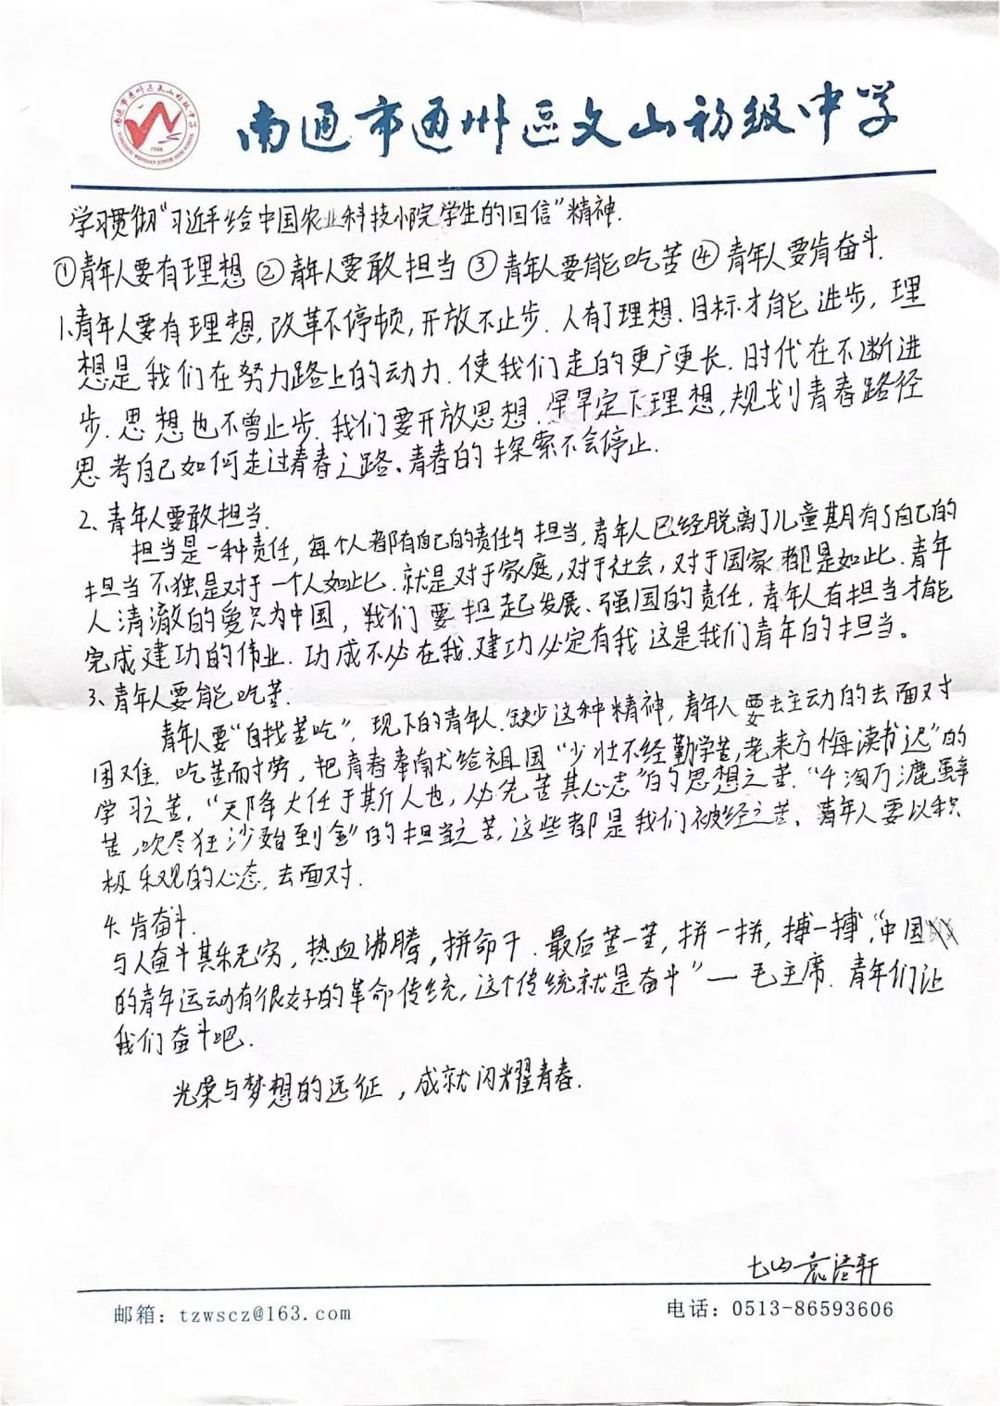 南通市通州區文山初级中学
学习贯彻“习近平给中国农业科技小院学生的回信”精神.
①青年人要有理想 ②青年人要敢担当 ③青年人要能吃苦 ④青年人要肯奋斗.
1、青年人要有理想,改革不停顿,开放不止步.人有了理想.目标才能进步,理
想是我们在努力路上的动力.使我们走的更广更长.时代在不断进
步.思想也不曾止步.我们要开放思想.早早定下理想,规划青春路径
思考自己如何走过青春之路、青春的探索不会停止.
2、青年人要敢担当.
担当是一种责任,每个人都有自己的责任与担当,青年人已经脱离了儿童期有了自己的
担当不独是对于一个人如此.就是对于家庭,对于社会,对于国家.都是如此.青年
人清澈的爱只为中国,我们要担起发展、强国的责任.青年人有担当才能
完成建功的伟业.功成不必在我.建功必定有我 这是我们青年的担当。
3、青年人要能吃苦.
青年人要“自找苦吃”,现下的青年人.缺少这种精神,青年人要去主动的去面对
困难.吃苦耐劳,把青春奉献给祖国“少壮不经勤学苦,老来方悔读书迟”的
学习之苦.“天降大任于斯人也,必先苦其心志”的思想之苦.“千淘万漉虽辛
苦,吹尽狂沙始到金”的担当之苦,这些都是我们被经之苦、青年人要以积
极乐观的心态.去面对.
4、肯奋斗.
与人奋斗其乐无穷,热血沸腾,拼命干.最后苦一苦,拼一拼,搏一搏,“中国
的青年运动有很好的革命传统,这个传统就是奋斗”一毛主席.青年们让
我们奋斗吧.
光荣与梦想的远征,成就闪耀青春.
七四 袁 轩
邮箱：tzwscz@163.com
电话：0513-86593606